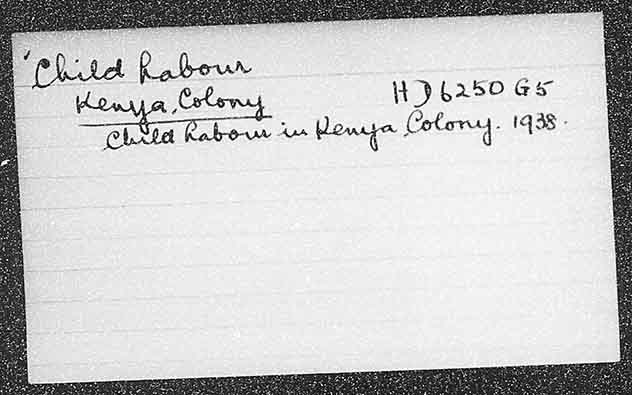 Child Labour
Kenya Colony HD 6250 G5
Child Labour in Kenya Colony. 1938.